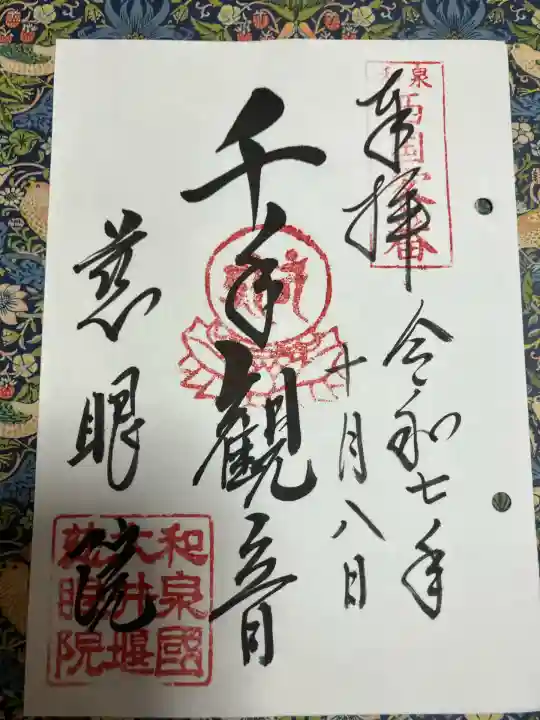 奉拝
令和七年
十月八日
千手観音
慈眼院
和泉
西国
番
和泉國
大井堰
慈眼院